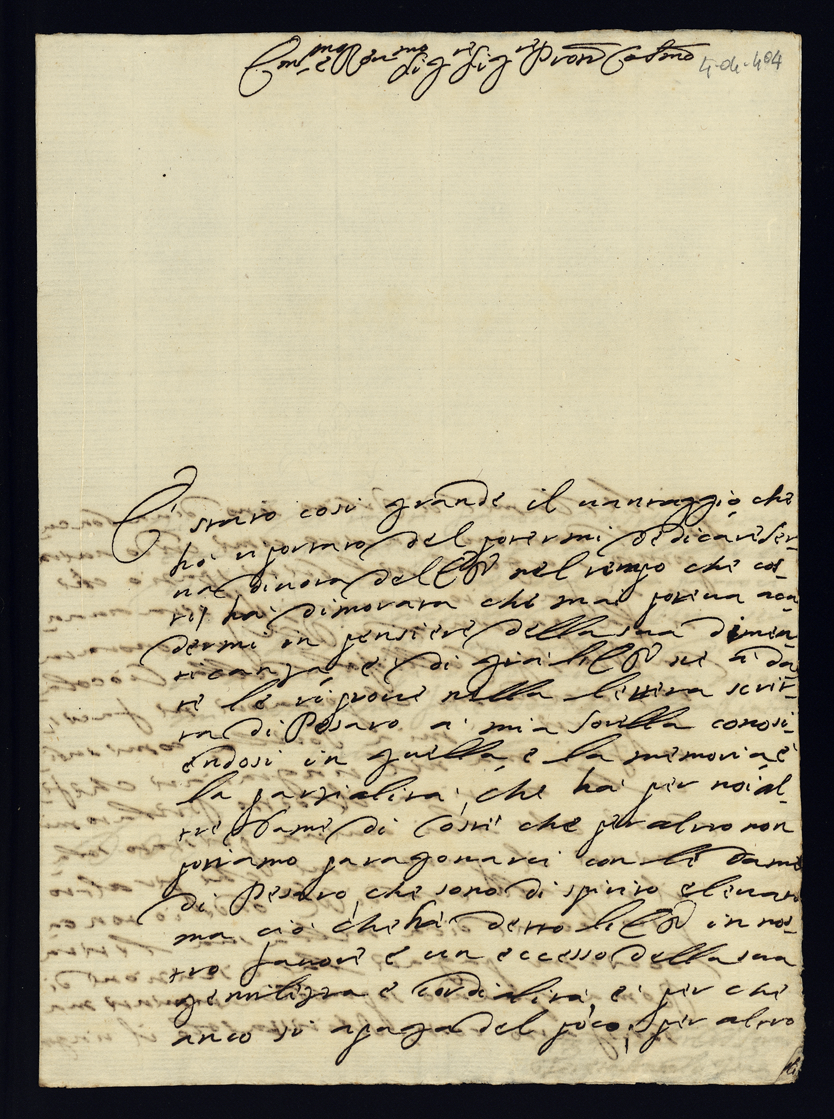 Em.mo e Rev.mo Sig.re Sig.re Pron Col.mo 4-04-404
E' stato cosi grande il uantaggio che
ho riportato del potermi dedicare ser-
ua dinota dell'E V nel tempo che cos-
tì ha dimorata che mai poteua aca-
dermi in pensiere della sua dimen-
ticanza, e di già l'E V ne à da-
te le riproue nella lettera scrit-
ta di Pesaro a mia Sorella conosi-
endosi in quella, e la memoria e
la parzialita, che ha per noi al-
tre Dame di Costì che per altro non
potiamo paragonarci con le dame
di Pesaro, che sono di spirito eleuato
ma ciò che ha detto l'E V in nos-
tro fauore è un eccesso della sua
gentilezza e cordialità, e per che
anco si apaga del poco, per altro